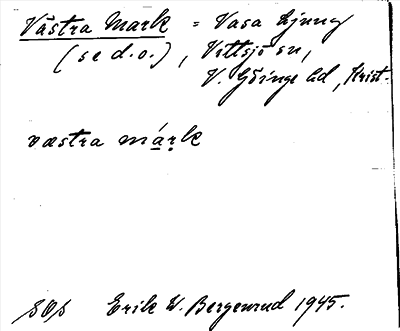 Västra Mark = Vasa Ljung
(se d.o.), Vittsjö sn,
V. Göinge hd, Krist.
væstra márk
SOS Erik W. Bergenrud 1945.